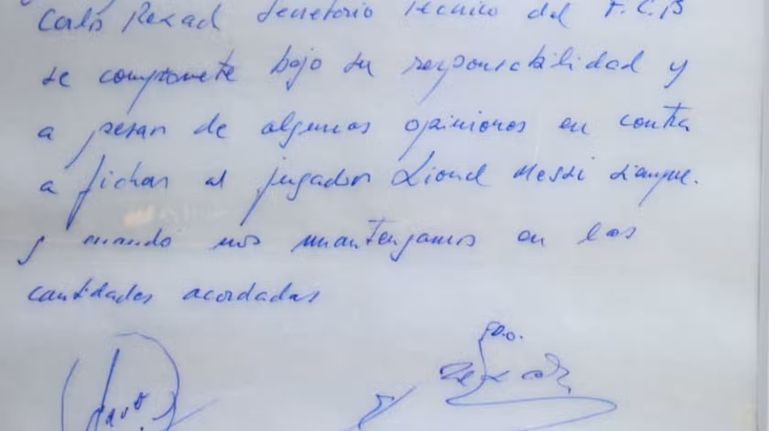 Carlos Rexach Secretario Técnico del F.C.B
se compromete bajo su responsabilidad y
a pesar de algunas opiniones en contra
a fichar al jugador Lionel Messi siempre
y cuando nos mantengamos en las
cantidades acordadas